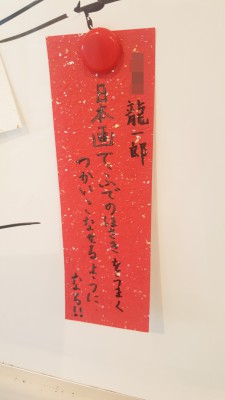 龍一郎
日本画で、ふでのほさきをうまく
つかいこなせるように
なる!!